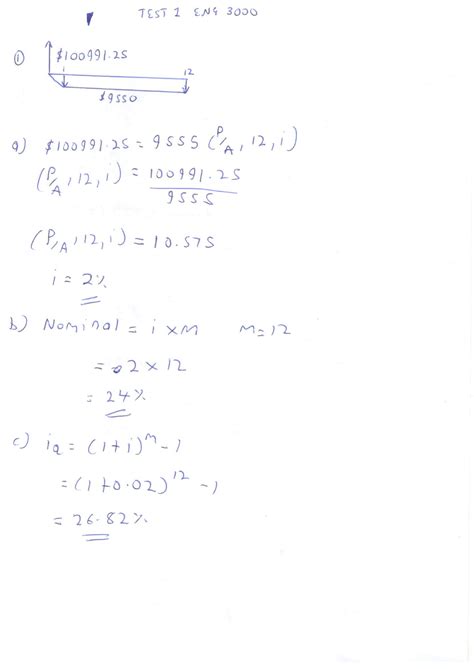 TEST 1 ENG 3000
① $100991.25
1 12
$9550
a) $100991.25 = 9555 (P/A, 12, i)
(P/A, 12, i) = 100991.25
9555
(P/A, 12, i) = 10.575
i = 2%
b) Nominal = i × M M = 12
= 2 × 12
= 24%
c) ia = (1+i)^m - 1
= (1+0.02)^12 - 1
= 26.82%